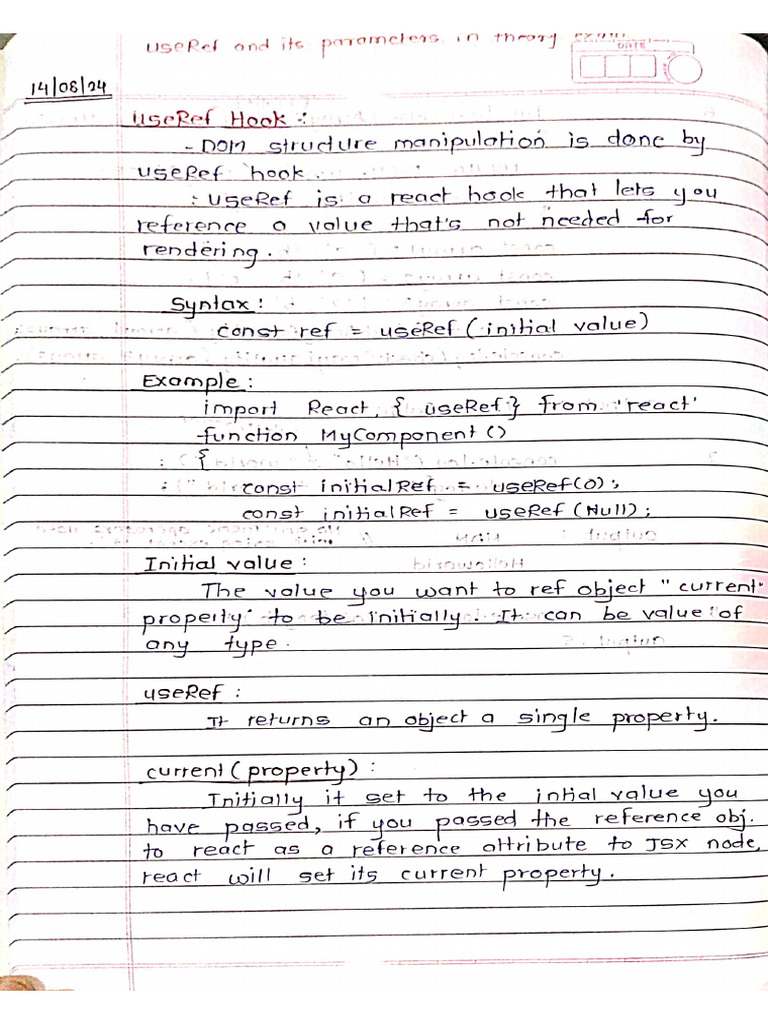 useRef and its parameters in theory exam
DATE
14/08/24
useRef Hook :
- DOM structure manipulation is done by
useRef hook.
: useRef is a react hook that lets you
reference a value that's not needed for
rendering.
Syntax :
const ref = useRef ( initial value)
Example :
import React, { useRef } from 'react'
function MyComponent ()
{
const initialRef = useRef(0);
const initialRef = useRef (Null);
Initial value :
The value you want to ref object "current
property" to be initially. It can be value of
any type.
useRef :
It returns an object a single property.
current ( property) :
Initially it set to the intial value you
have passed, if you passed the reference obj.
to react as a reference attribute to JSX node,
react will set its current property.